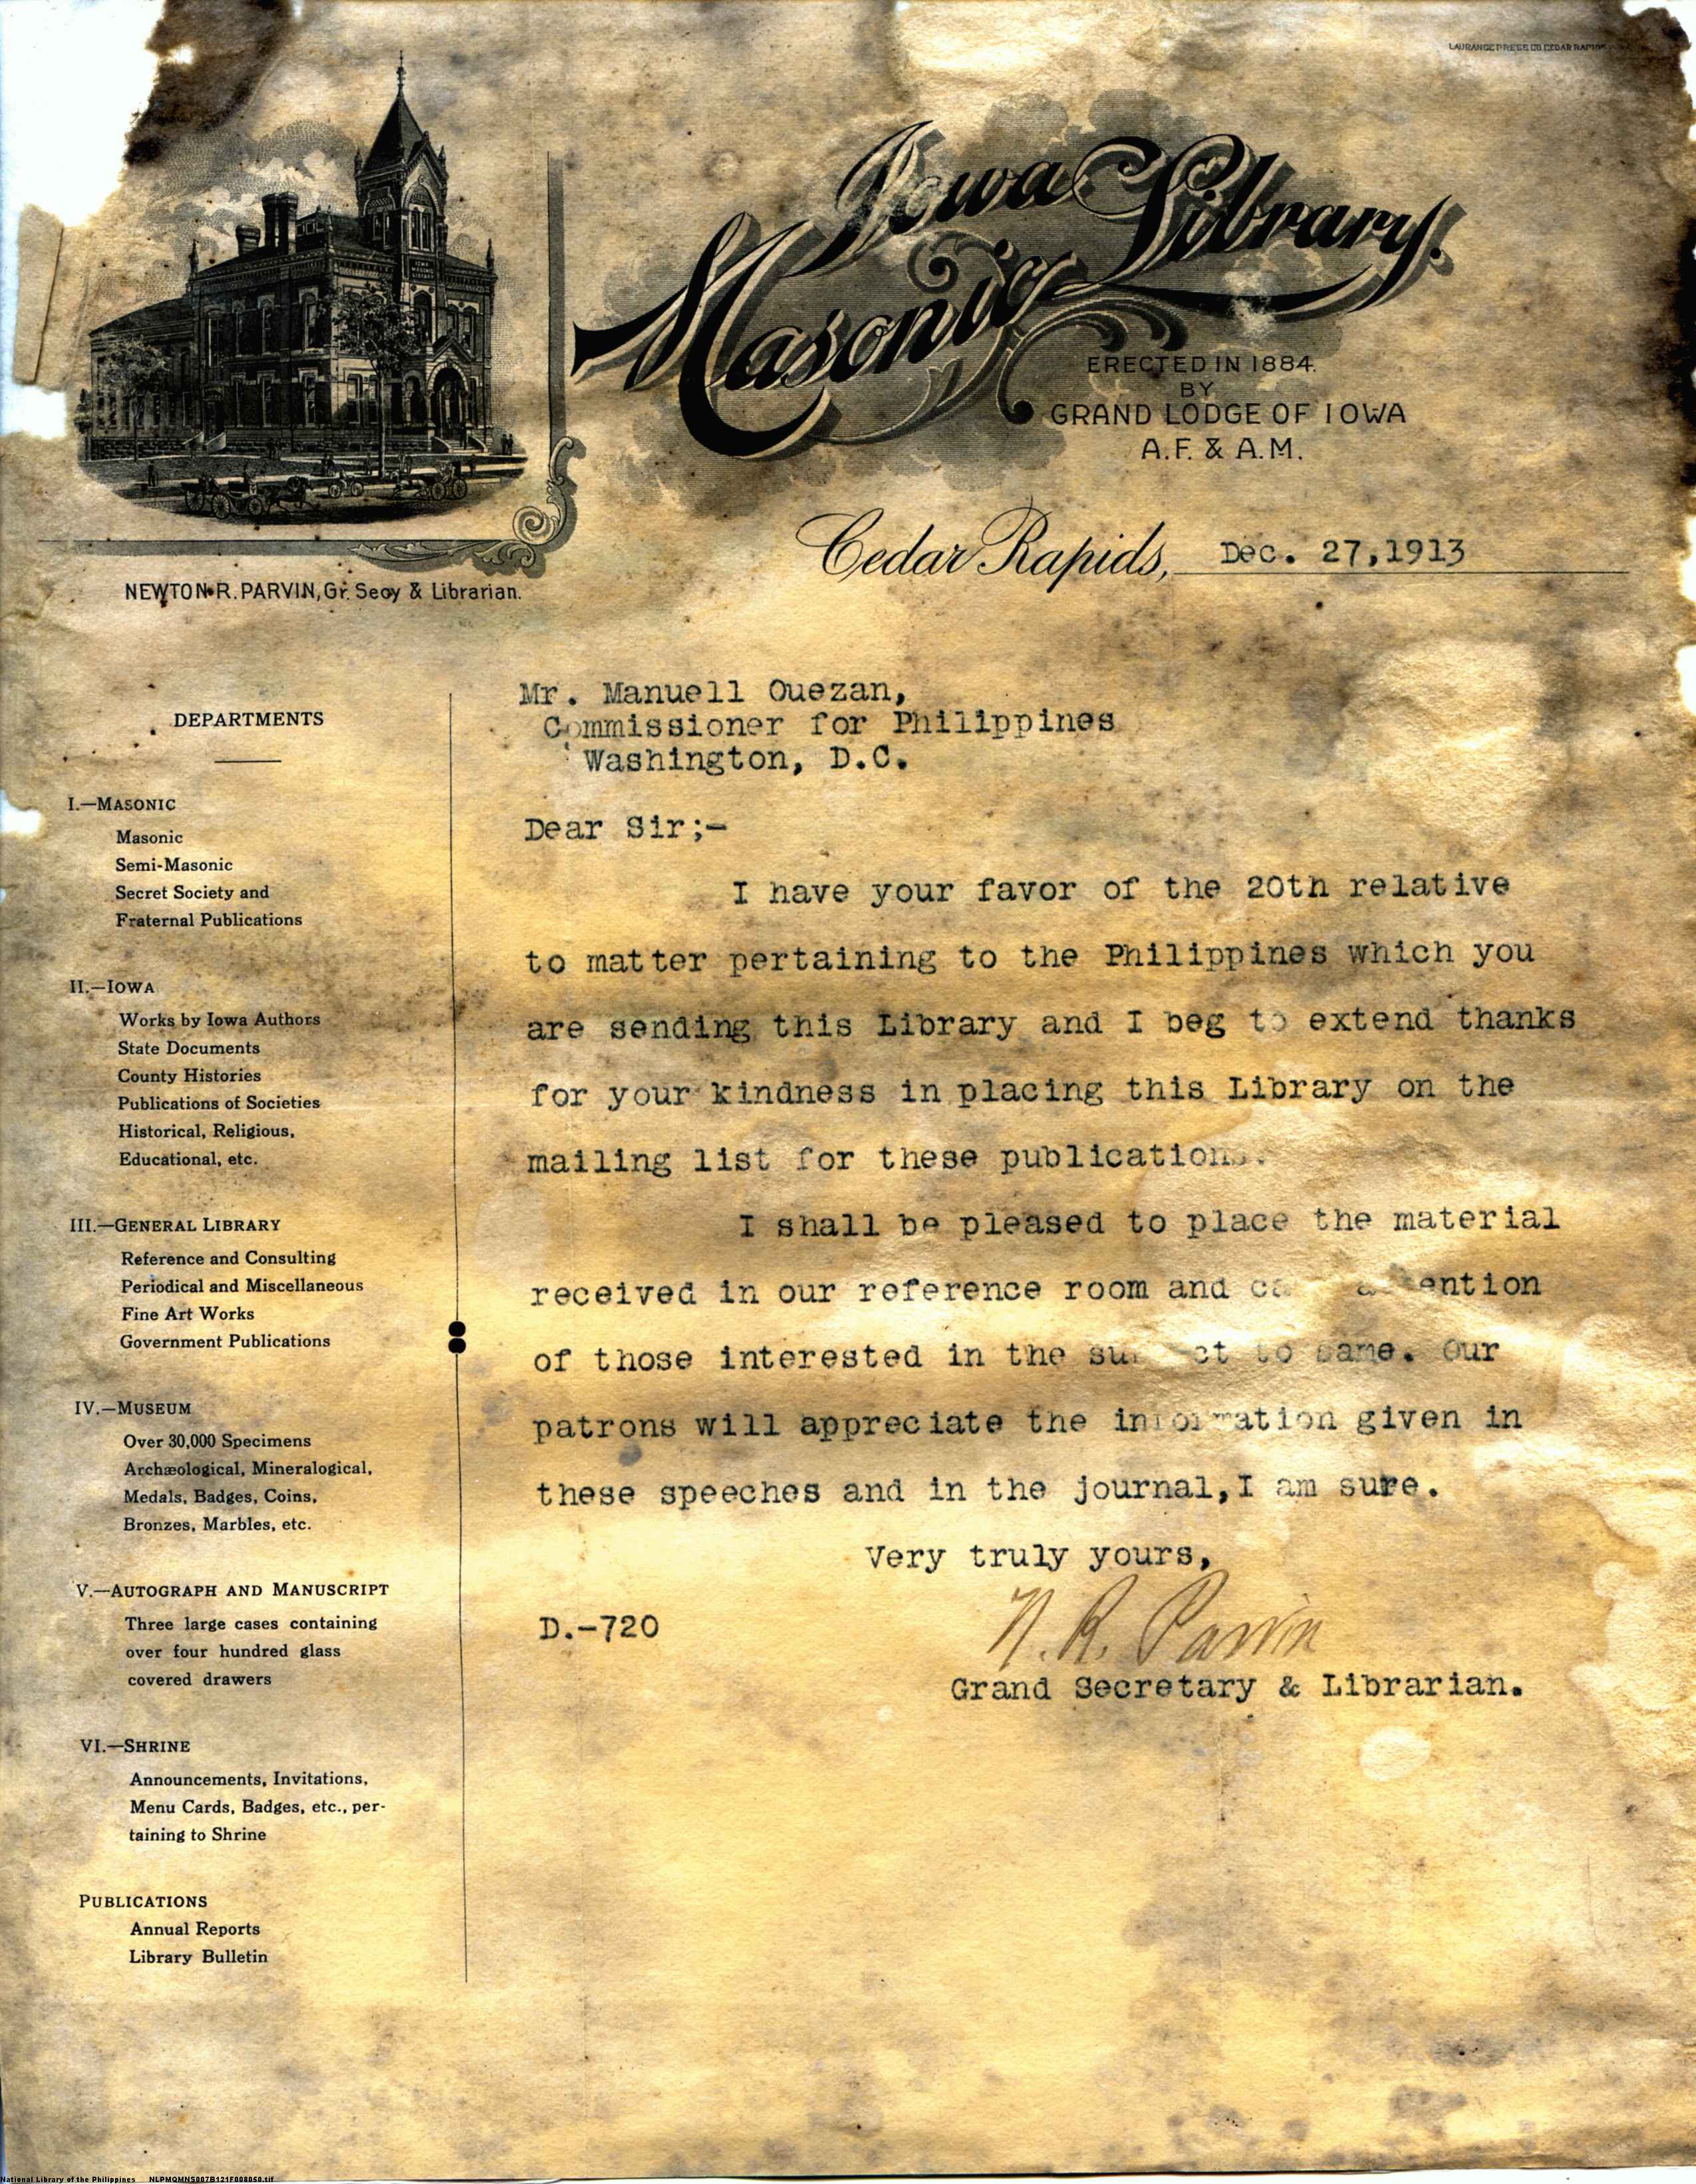 LAURANCE PRESS CO CEDAR RAPIDS
Iowa
Masonic Library.
ERECTED IN 1884.
BY
GRAND LODGE OF IOWA
A.F. & A.M.
IOWA
MASONIC
LIBRARY
Cedar Rapids, Dec. 27,1913
NEWTON R. PARVIN, Gr. Secy & Librarian.
Mr. Manuell Ouezan,
Commissioner for Philippines
Washington, D.C.
Dear Sir;-
I have your favor of the 20th relative
to matter pertaining to the Philippines which you
are sending this Library and I beg to extend thanks
for your kindness in placing this Library on the
mailing list for these publications.
I shall be pleased to place the material
received in our reference room and
of those interested in the to same. Our
patrons will appreciate the information given in
these speeches and in the journal,I am sure.
Very truly yours,
N. R. Parvin
D.-720
Grand Secretary & Librarian.
DEPARTMENTS
I.—MASONIC
Masonic
Semi-Masonic
Secret Society and
Fraternal Publications
II.—IOWA
Works by Iowa Authors
State Documents
County Histories
Publications of Societies
Historical, Religious,
Educational, etc.
III.—GENERAL LIBRARY
Reference and Consulting
Periodical and Miscellaneous
Fine Art Works
Government Publications
IV.—MUSEUM
Over 30,000 Specimens
Archæological, Mineralogical,
Medals, Badges, Coins,
Bronzes, Marbles, etc.
V.—AUTOGRAPH AND MANUSCRIPT
Three large cases containing
over four hundred glass
covered drawers
VI.—SHRINE
Announcements, Invitations,
Menu Cards, Badges, etc., per-
taining to Shrine
PUBLICATIONS
Annual Reports
Library Bulletin
National Library of the Philippines NLPMQMNS007B121F008050.tif